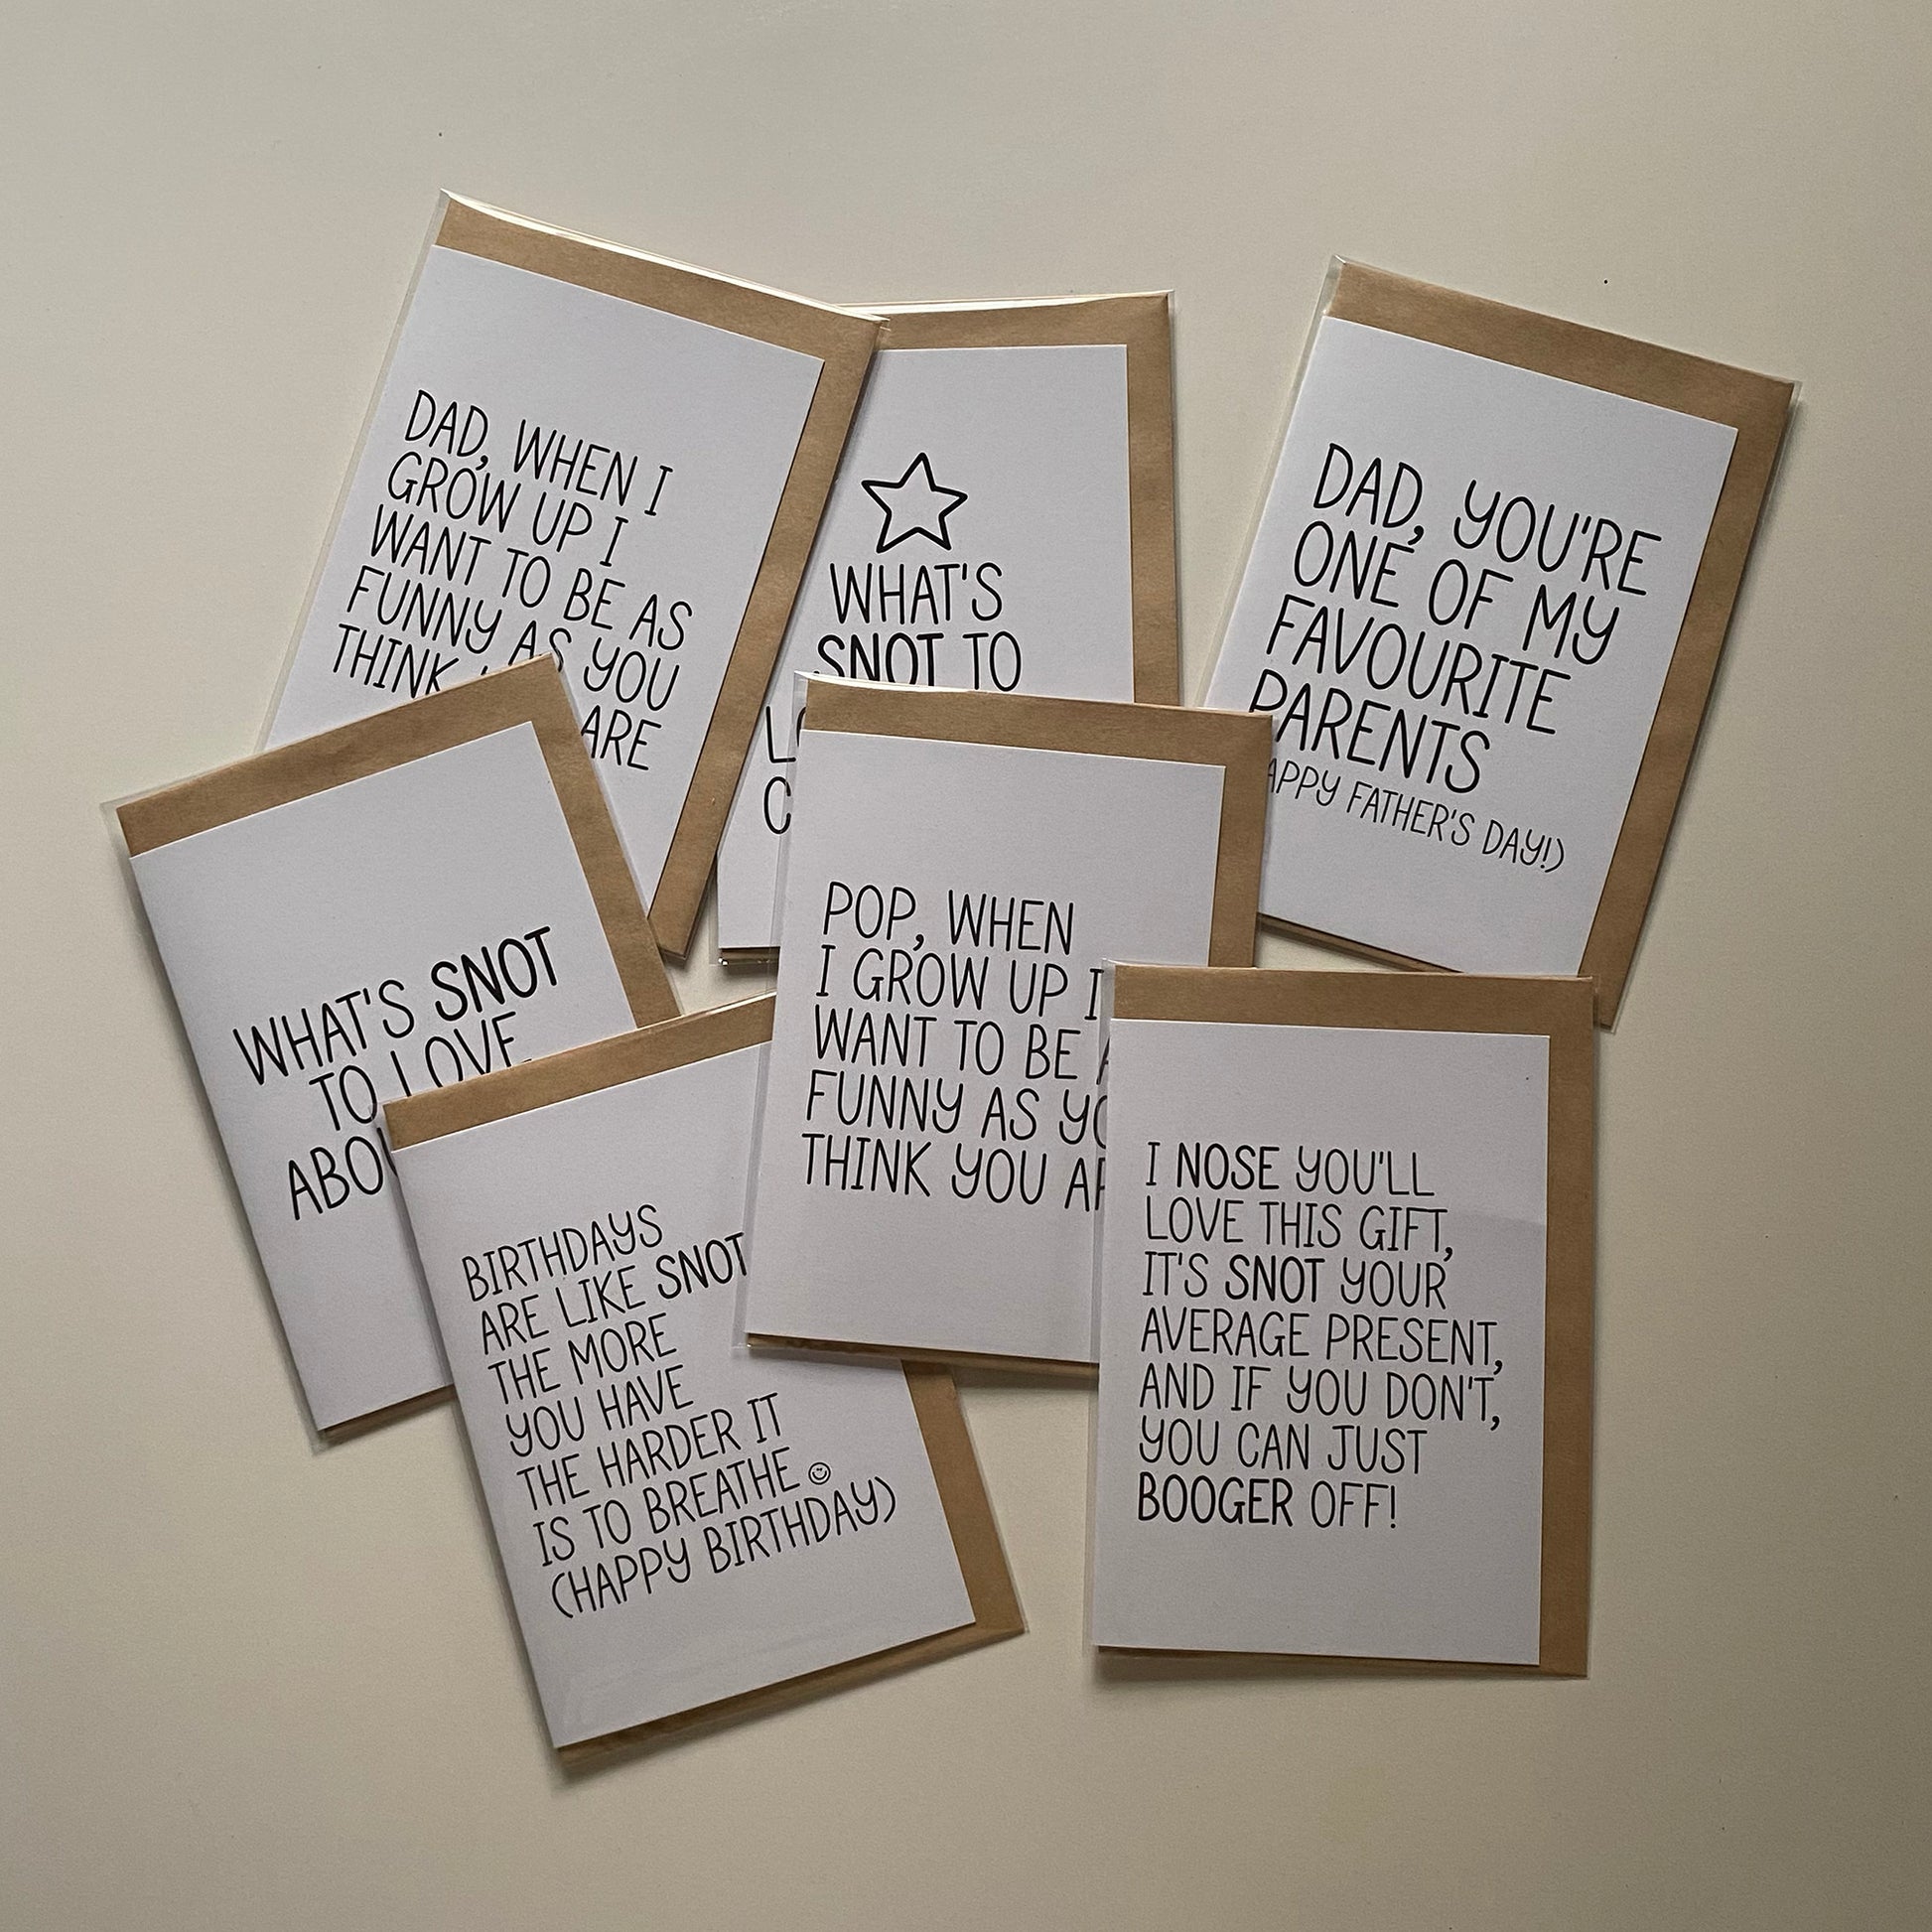 DAD, WHEN I
GROW UP I
WANT TO BE AS
FUNNY AS YOU
THINK
ARE
WHAT'S
SNOT TO
DAD, YOU'RE
ONE OF MY
FAVOURITE
PARENTS
FATHER'S DAY!)
WHAT'S SNOT
TO LOVE
POP, WHEN
I GROW UP I
WANT TO BE
FUNNY AS
THINK YOU
BIRTHDAYS
ARE LIKE SNOT
THE MORE
YOU HAVE
THE HARDER IT
IS TO BREATHE
(HAPPY BIRTHDAY)
I NOSE YOU'LL
LOVE THIS GIFT,
IT'S SNOT YOUR
AVERAGE PRESENT,
AND IF YOU DON'T,
YOU CAN JUST
BOOGER OFF!